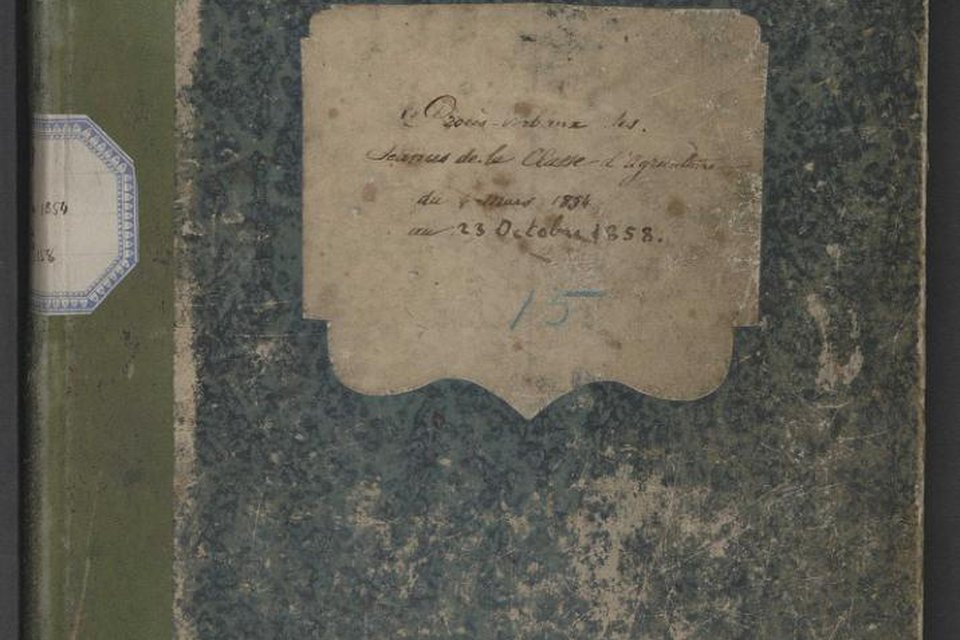 1854
Procès-verbaux des
Séances de la Classe d'Agriculture
du mars 1854
au 23 Octobre 1858.
15